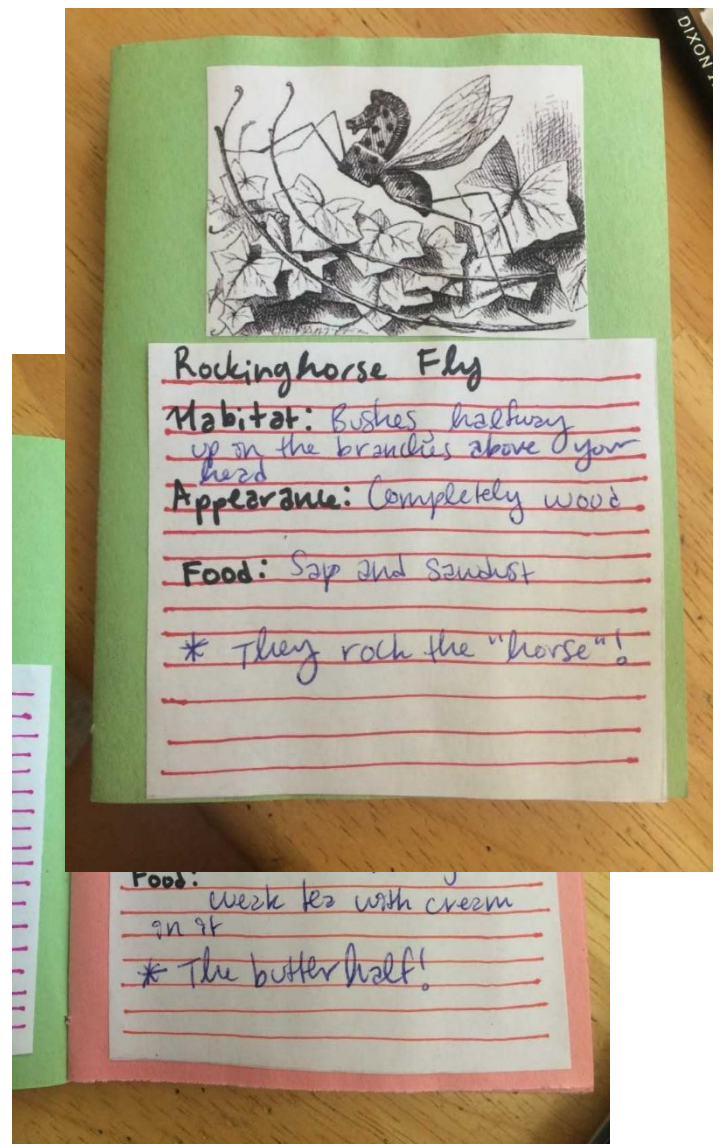 DIXON
Rockinghorse Fly
Habitat: Bushes, halfway
up on the branches above your
head
Appearance: Completely wood
Food: Sap and sawdust
* They rock the "horse"!
Food:
weak tea with cream
in it
* The butter half!